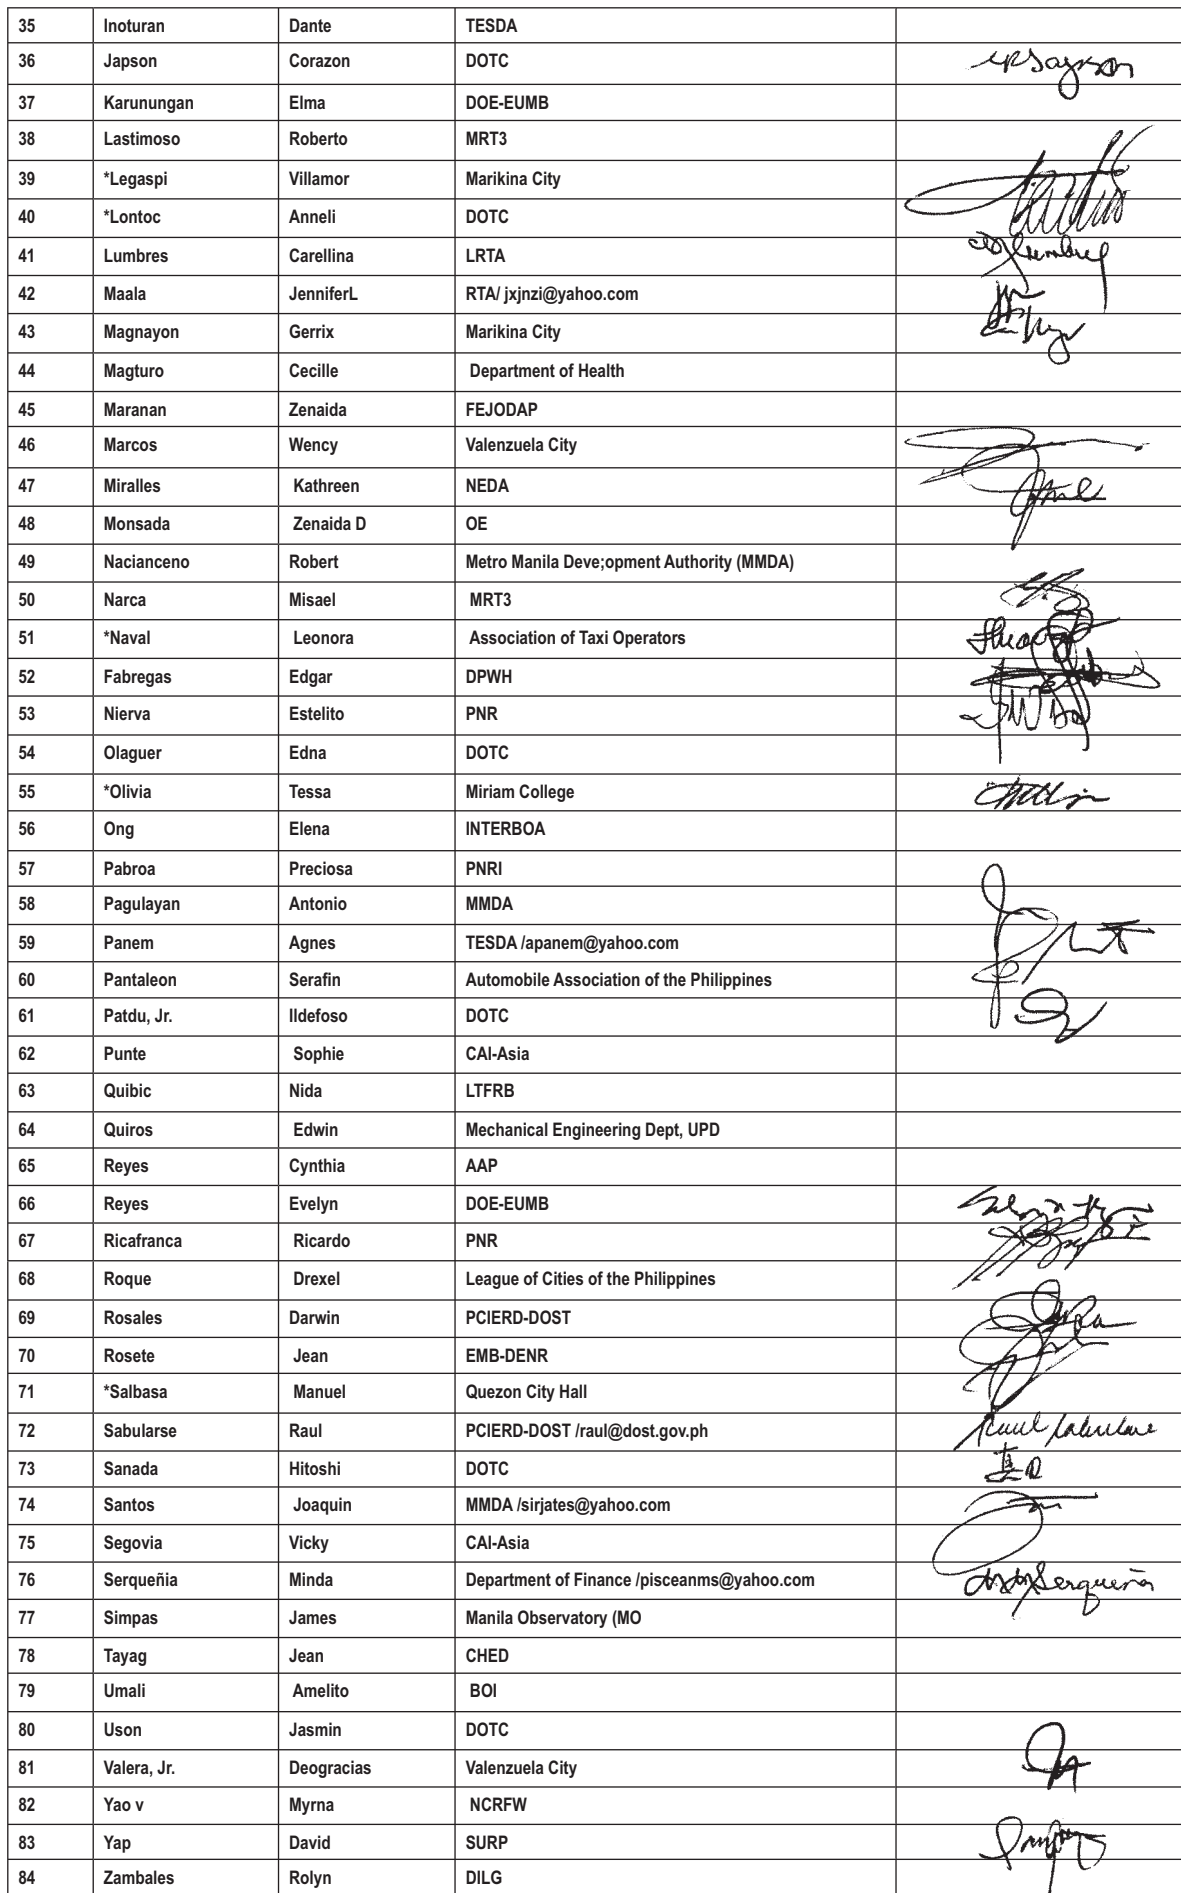 35 Inoturan Dante TESDA
36 Japson Corazon DOTC
37 Karunungan Elma DOE-EUMB
38 Lastimoso Roberto MRT3
39 *Legaspi Villamor Marikina City
40 *Lontoc Anneli DOTC
41 Lumbres Carellina LRTA
42 Maala JenniferL RTA/ jxjnzi@yahoo.com
43 Magnayon Gerrix Marikina City
44 Magturo Cecille Department of Health
45 Maranan Zenaida FEJODAP
46 Marcos Wency Valenzuela City
47 Miralles Kathreen NEDA
48 Monsada Zenaida D OE
49 Nacianceno Robert Metro Manila Deve;opment Authority (MMDA)
50 Narca Misael MRT3
51 *Naval Leonora Association of Taxi Operators
52 Fabregas Edgar DPWH
53 Nierva Estelito PNR
54 Olaguer Edna DOTC
55 *Olivia Tessa Miriam College
56 Ong Elena INTERBOA
57 Pabroa Preciosa PNRI
58 Pagulayan Antonio MMDA
59 Panem Agnes TESDA /apanem@yahoo.com
60 Pantaleon Serafin Automobile Association of the Philippines
61 Patdu, Jr. Ildefoso DOTC
62 Punte Sophie CAI-Asia
63 Quibic Nida LTFRB
64 Quiros Edwin Mechanical Engineering Dept, UPD
65 Reyes Cynthia AAP
66 Reyes Evelyn DOE-EUMB
67 Ricafranca Ricardo PNR
68 Roque Drexel League of Cities of the Philippines
69 Rosales Darwin PCIERD-DOST
70 Rosete Jean EMB-DENR
71 *Salbasa Manuel Quezon City Hall
72 Sabularse Raul PCIERD-DOST /raul@dost.gov.ph
73 Sanada Hitoshi DOTC
74 Santos Joaquin MMDA /sirjates@yahoo.com
75 Segovia Vicky CAI-Asia
76 Serqueñia Minda Department of Finance /pisceanms@yahoo.com
77 Simpas James Manila Observatory (MO
78 Tayag Jean CHED
79 Umali Amelito BOI
80 Uson Jasmin DOTC
81 Valera, Jr. Deogracias Valenzuela City
82 Yao v Myrna NCRFW
83 Yap David SURP
84 Zambales Rolyn DILG